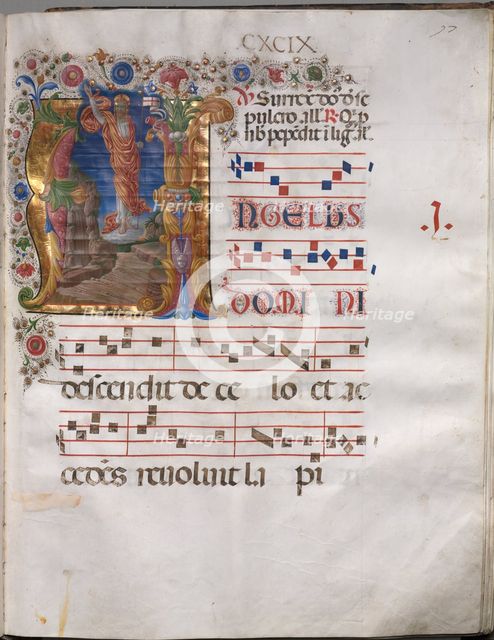 CXCIX
℣ Surrex̄ dō de se
pulcro all̄ ℟ Q̄ p̄
nob̄ pepēdit ī lig̃ al̄
ANGELUS
DOMI NI
descendit de ce lo et ac
cedēs revolvit la pi
.J.